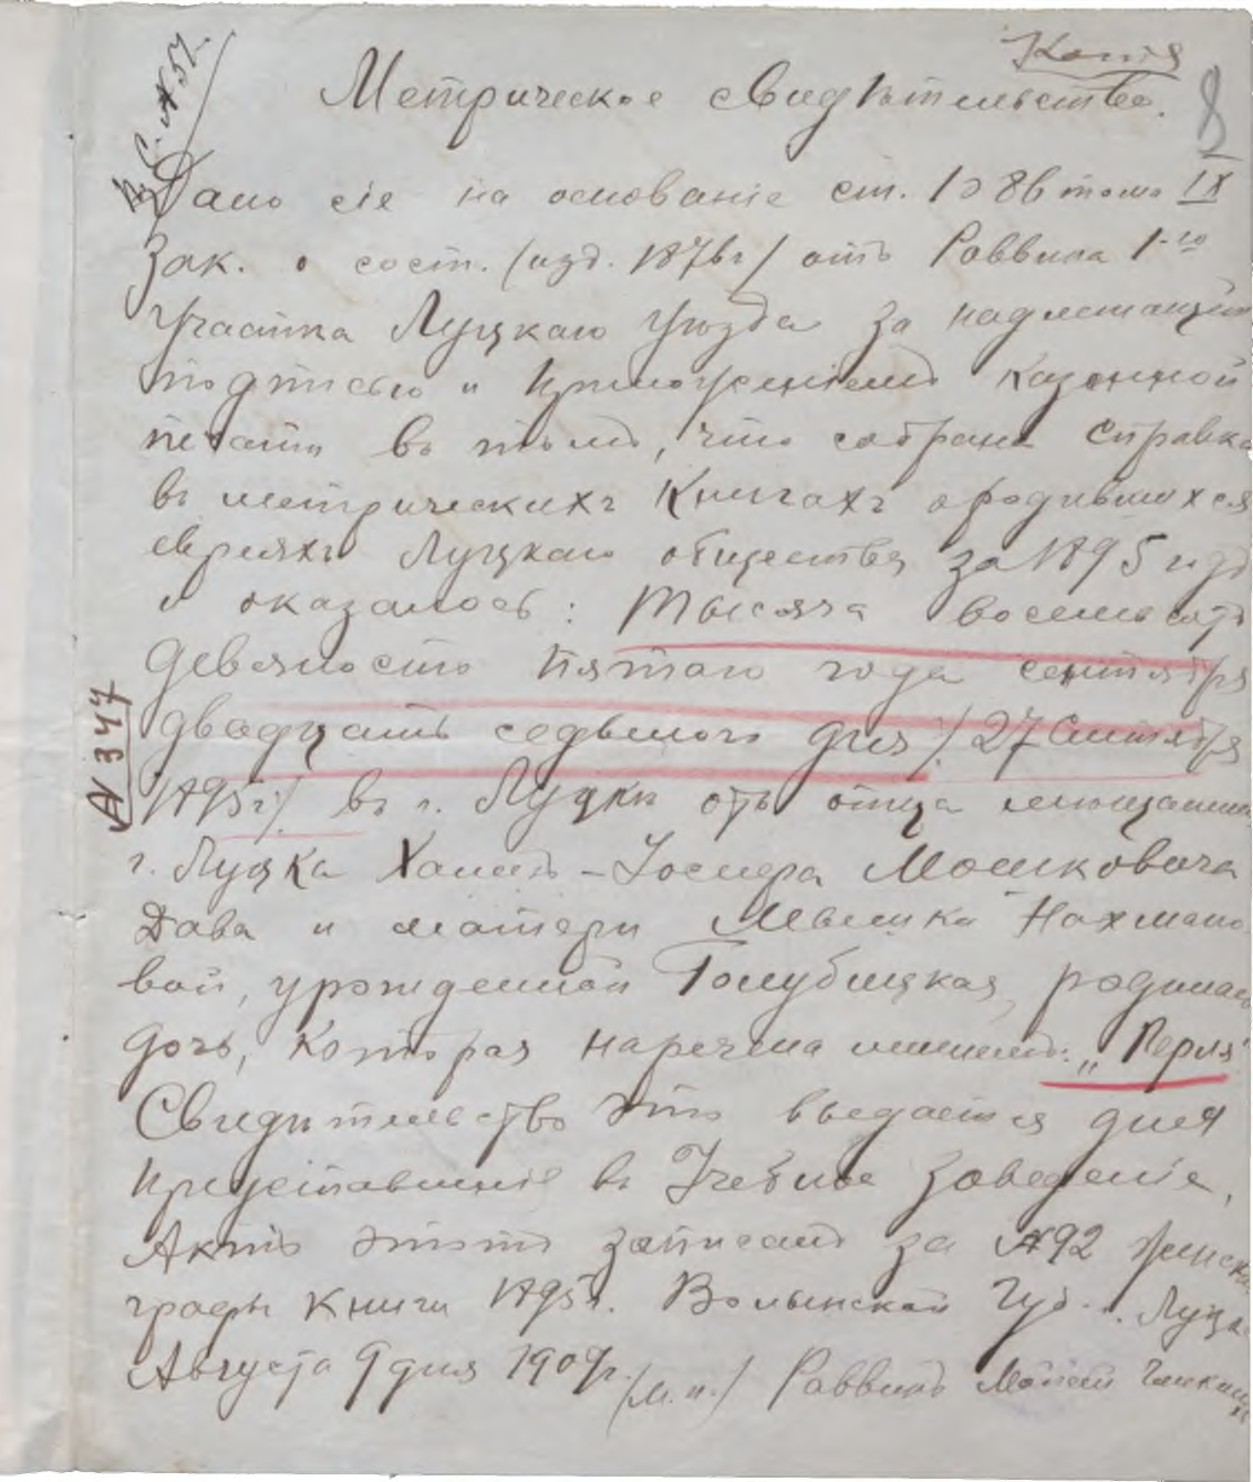 Копія
Метрическое свидѣтельство.
8
Дано сіе на основаніе ст. 1086 тома IX
Зак. о сост. (изд. 1876г) отъ Раввина 1-го
Участка Луцкаго Уѣзда за надлежащей
подписью и приложеніемъ казенной
печати въ томъ, что собрана справка
въ метрическихъ Книгахъ о родившихся
евреяхъ Луцкаго общества за 1895 годъ
и оказалось: Тысяча восемьсотъ
девяносто пятаго года сентября
двадцать седьмого дня (27 Сентября
№ 347
1895г) въ г. Луцкѣ отъ отца мѣщанина
г. Луцка Хаимъ-Іосифа Мошковича
Дава и матери Нахмано
вой, урожденной Голубицкая, родилась
дочь, которая наречена именемъ: „Перля"
Свидѣтельство это выдается для
представленія въ Учебное заведеніе,
Актъ этотъ записанъ за №92 женской
графы Книги 1895г. Волынской Губ. г. Луцк
Августа 9 дня 1909г. (М.п.) Раввинъ